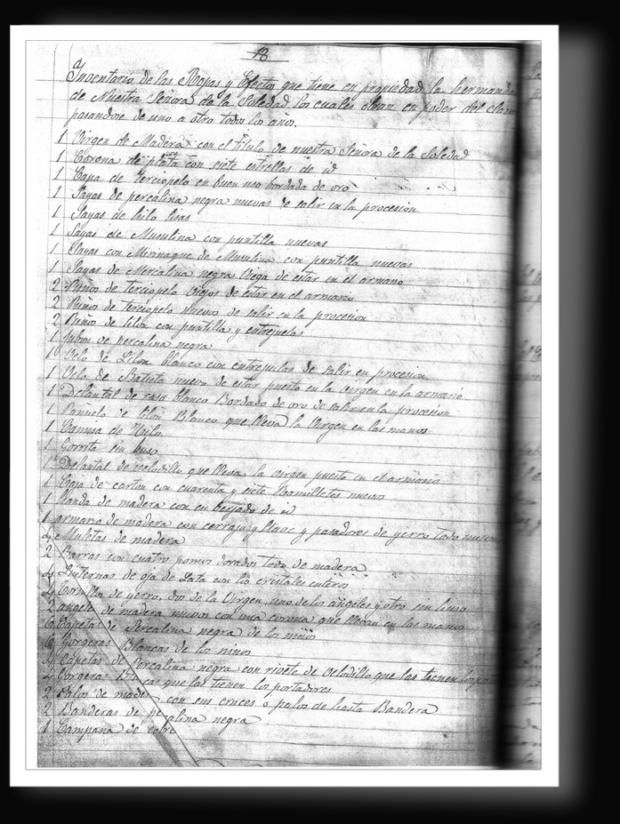 18
Inventario de las Ropas y Efectos que tiene en propiedad la hermandad
de Nuestra Señora de la Soledad los cuales obran en poder del
pasandose de uno a otro todo los años.
1 Virgen de Madera con el titulo de nuestra Señora de la Soledad
1 Corona de plata con siete estrellas de id
1 Capa de Terciopelo en buen uso bordada de oro
1 Sayas de percalina negra nuevas de salir en la procesion
1 Sayas de hilo lisas
1 Sayas de Musulina con puntilla nuevas
1 Sayas con Mirinaque de Musulina con puntilla nuevas
1 Sayas de Mercalina negra Viega de estar en el armario
2 Puños de terciopelo viejos de estar en el armario
2 Puños de terciopelo nuevos de salir en la procesion
2 Puños de lilon con puntilla y entrejuelas
1 Jubon de percalina negra
1 Velo de Lilon blanco con entrejuelas de salir en procesion
1 Velo de Batista nuevo de estar puesto en la virgen en la armario
1 Delantal de raso blanco Bordado de oro de salir en la procesion
1 Panuelo de lilon Blanco que lleva la Virgen en las manos
1 Camisa de Hilo
1 Gorrita
1 Delantal de velodillo que lleva la virgen puesto en el armario
1 Caja de carton con cuarenta y siete Ramilletes nuevos
1 Banda de madera con su de id
1 armario de madera con cerraja y llave y pasadores de yerro todo nuevo
4 Muletas de madera
2 Barras con cuatro pomos dorados todo de madera
4 Linternas de oja de Lata con los cristales enteros
4 Tornillos de yerro, dos de la Virgen, uno de los angeles y otro sin huso
2 angeles de madera nuevos con una corona que llevan en las manos
Capetas de Percalina negra de los niños
Gorgeras Blancas de los ninos
4 Capetas de Percalina negra con rivete de velodillo que las tienen los
4 Gorgeras Blancas que las tienen los portadores
2 Palos de madera con sus cruces o palos de hasta Bandera
2 Banderas de percalina negra
1 Campana de cobre